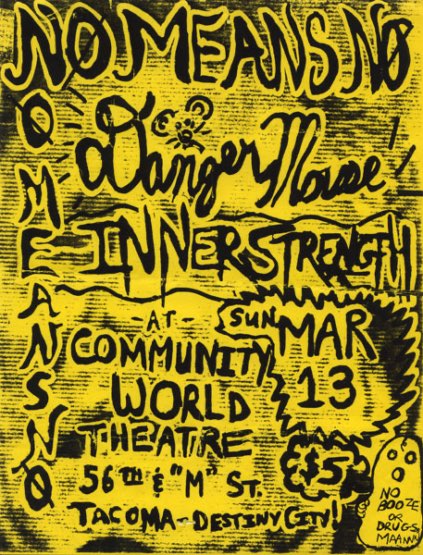 NO MEANS NO
NOMEANSNO
Danger Mouse
INNERSTRENGTH
-AT-
COMMUNITY
WORLD
THEATRE
56th & "M" ST.
TACOMA-DESTINY CITY!
SUN MAR
13
$5
NO
BOOZE
OR
DRUGS
MAANN